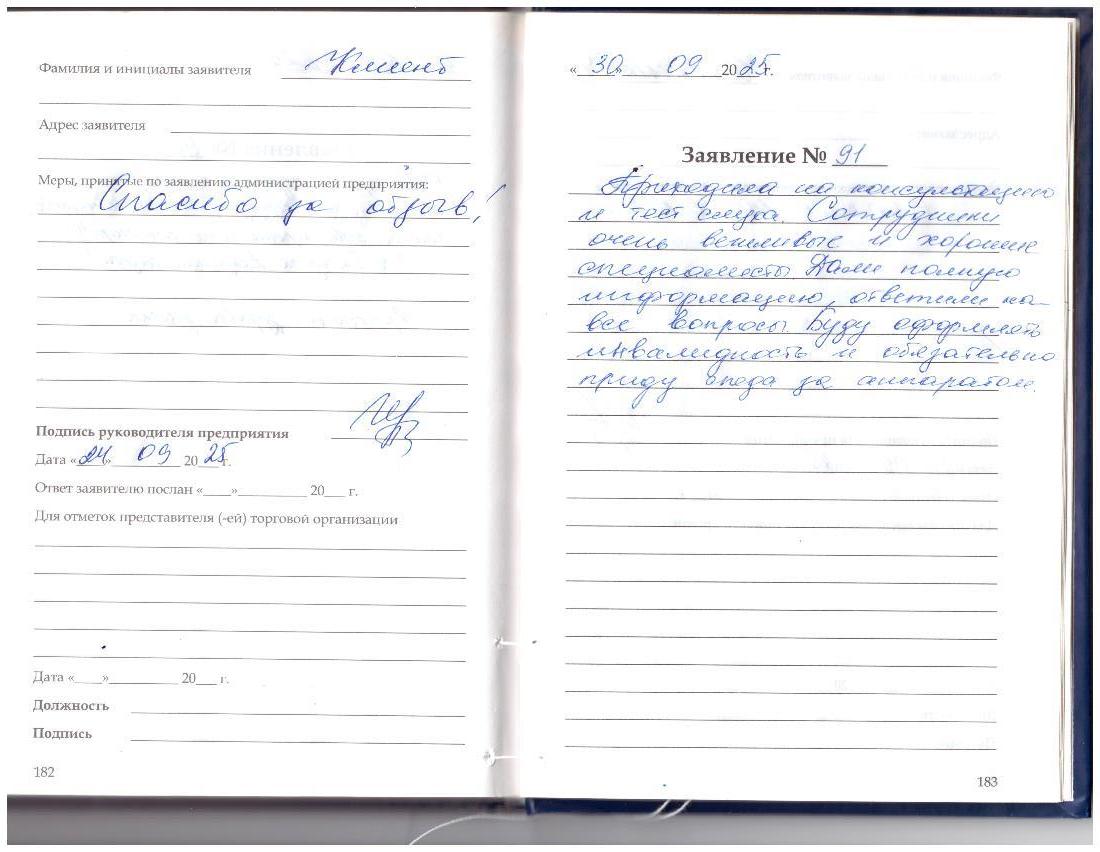 Фамилия и инициалы заявителя Клиент
Адрес заявителя
Меры, принятые по заявлению администрацией предприятия:
Спасибо за отзыв!
Подпись руководителя предприятия
Дата «24» 09 2025г.
Ответ заявителю послан «____»__________ 20___ г.
Для отметок представителя (-ей) торговой организации
Дата «____»__________ 20___ г.
Должность
Подпись
182
«30» 09 2025г.
Заявление № 91
Приходила на консультацию
и тест слуха. Сотрудники
очень вежливые и хорошие
специалисты. Дали полную
информацию, ответили на
все вопросы. Буду оформлять
инвалидность и обязательно
приду сюда за аппаратом.
183